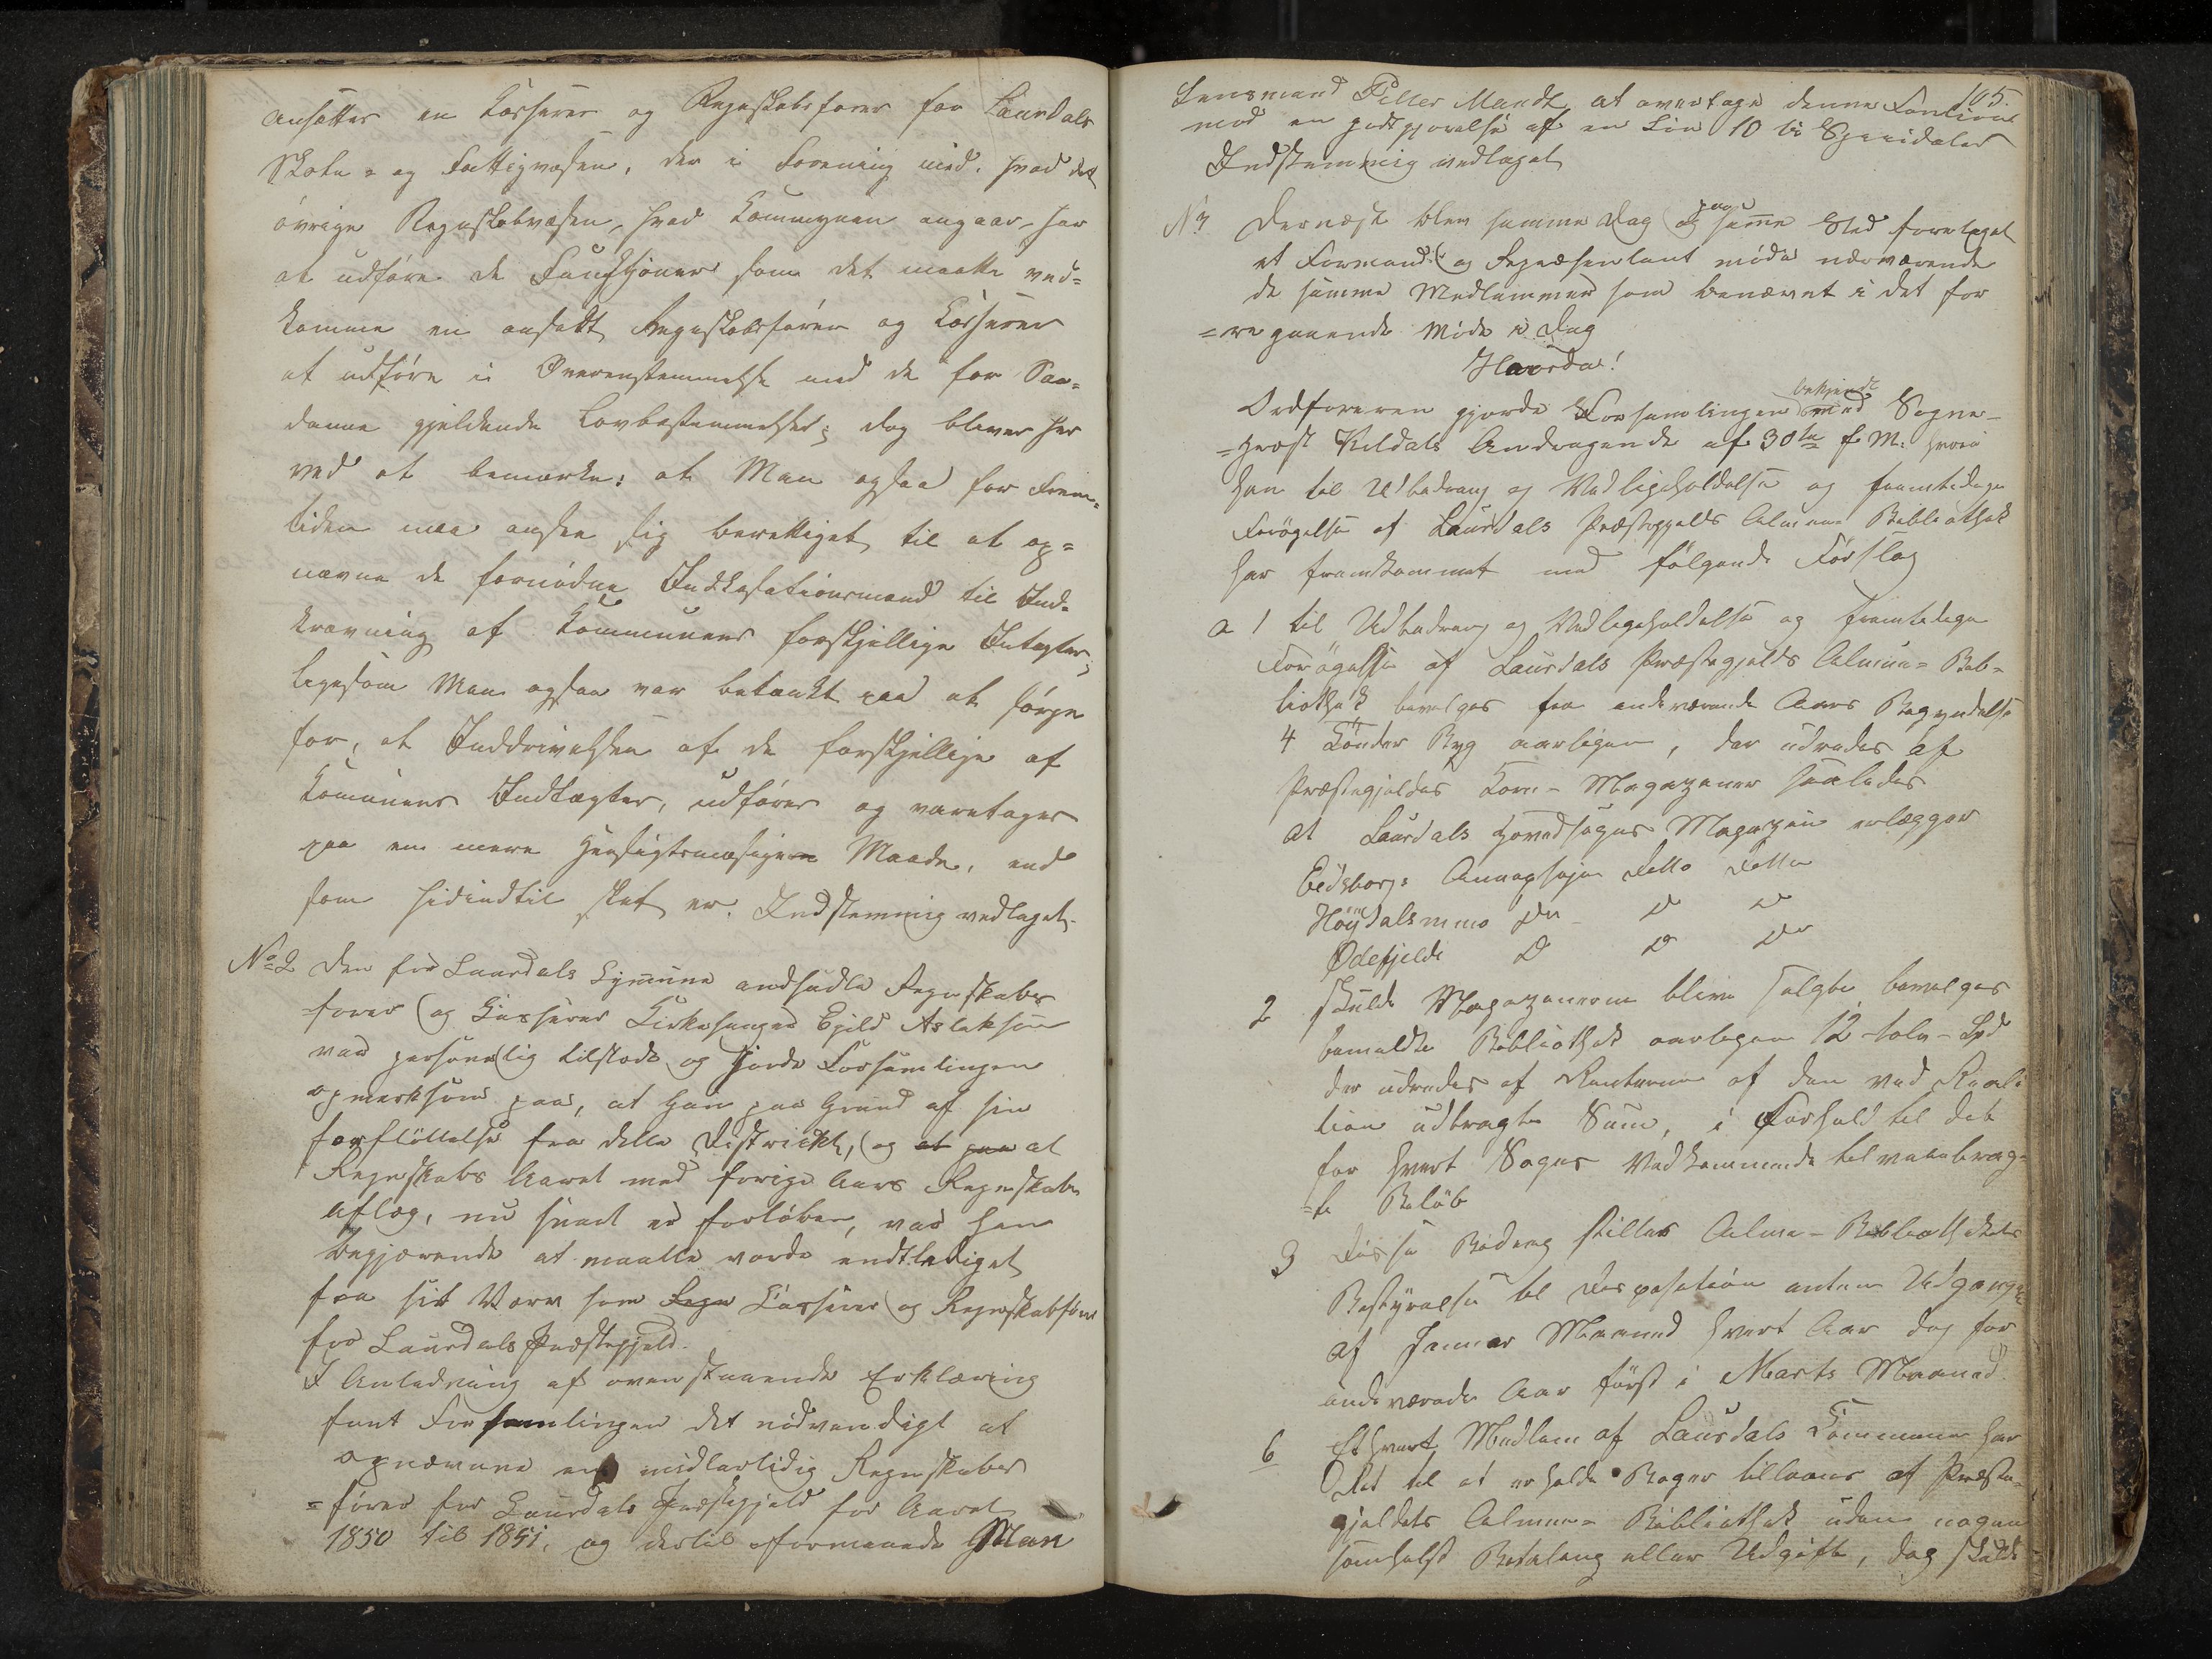 ansætter en Casserer og Regnskabsfører for Laurdals
Skole- og Fattigvæsen, der i Forening med, hvad det
øvrige Regnskabvæsen, hvad Kommunen angaar, har
at udføre de Funktioner som det maatte ved=
komme en ansatt Regnskabsfører og Casserer
at udføre i Overensstemmelse med de for Saa=
danne gjeldende Lovbestemmelser; dog bliver her
ved at bemærke: at Man ogsaa for Frem=
tiden maa ansee sig berettiget til at op=
nævne de fornødne Indkasationsmænd til Ind=
krævning af Kommunens forskjellige Intægter,
ligesom Man ogsaa var betænkt paa at sørge
for, at Inddrivelsen af de forskjellige af
Komunens Indtægter, udføres og varetages
paa en mere Hensigtsmæsigere Maade, end
som hidindtil skeet er. Indstemmig vedtaget.
No 2 Den for Laurdals Comune andsadte Regnskabs
fører og Casserer Kirkesanger Egild Aslaksen
var personlig tilstede og gjorde Forsamlingen
opmerksom paa, at han paa Grund af sin
forflöttelse fra dette Districkt, og at paa at
Regnskabs Aaret med forige Aars Regnskabs
Aflæg, nu snart er forløben, var han
begjærende at maatte vorde endtlediget
fra sit Værv som Regn Casserer og Regnskabsfører
for Laurdals Præstegjeld.
I Anledning af ovenstaaende Erklæring
fant Forsamlingen det nödvendigt at
opnævnne en midlertidig Regnskabs
=fører for Laurdals Præstegjeld for Aaret
1850 til 1851, og dertil formaaede Man
165.
Lensmand Petter Mandt at overtage denne Funtion
mod en godtgjørelse af en Løn 10 ti Speciedaler
Indstemmig vedtaget
No 3 Dernæst blev samme Dag og paa samme Sted foretaget
et Formands og Representant møde nærværende
de samme Medlemmer som benævnt i det for
=regaaende Møde i Dag
Hvorda!
Ordføreren gjorde Forsamlingen bekjendt med Sogne-
=præst Kildals Andragende af 30te f. M. hvori
han til Udbedring og Vedligeholdelse og fremtidige
Forøgelse af Laurdals Præstegjelds Almue Bibliothek
har fremkommet med følgende Forslag
a 1 til Udbedring og Vedligeholdelse og fremtidige
Forøgelse af Laurdals Præstegjelds Almue= Bib=
liothek bevilges fra indeværende Aars Begyndelse
4 Tønder Byg aarligen, der udredes af
Præstegjeldes Korn- Magaziner saaledes
at Laurdals Hovedsogns Magazin erlægger
Eidsborgs Annexsogn Detto Detto
Höydalsmmo Do - Do Do
Ødefjelds Do Do Do
2 skulde Magazinerne blive solgte bevilges
bemeldte Bibliothek aarligen 12 - tolv - Spd
der udredes af Renterne af den ved Reali
tion udbragte Sum, i Forhold til det
for hvert Sogns Vedkommende tilveiebrag-
=te Beløb
3 Disse Bidrag stilles Almue- Bibliothekets
Bestyrelse til Disposition inden Udgangen
af Januar Maaned hvert Aar dog for
indeværende Aar først i Marts Maaned
6 Ethvert Medlem af Laurdals Commune har
Ret til at erholde Bøger tillaans af Præste-
gjeldets Almue= Bibliothek uden nogen
somhelst Betaling eller Udgift, dog skulde